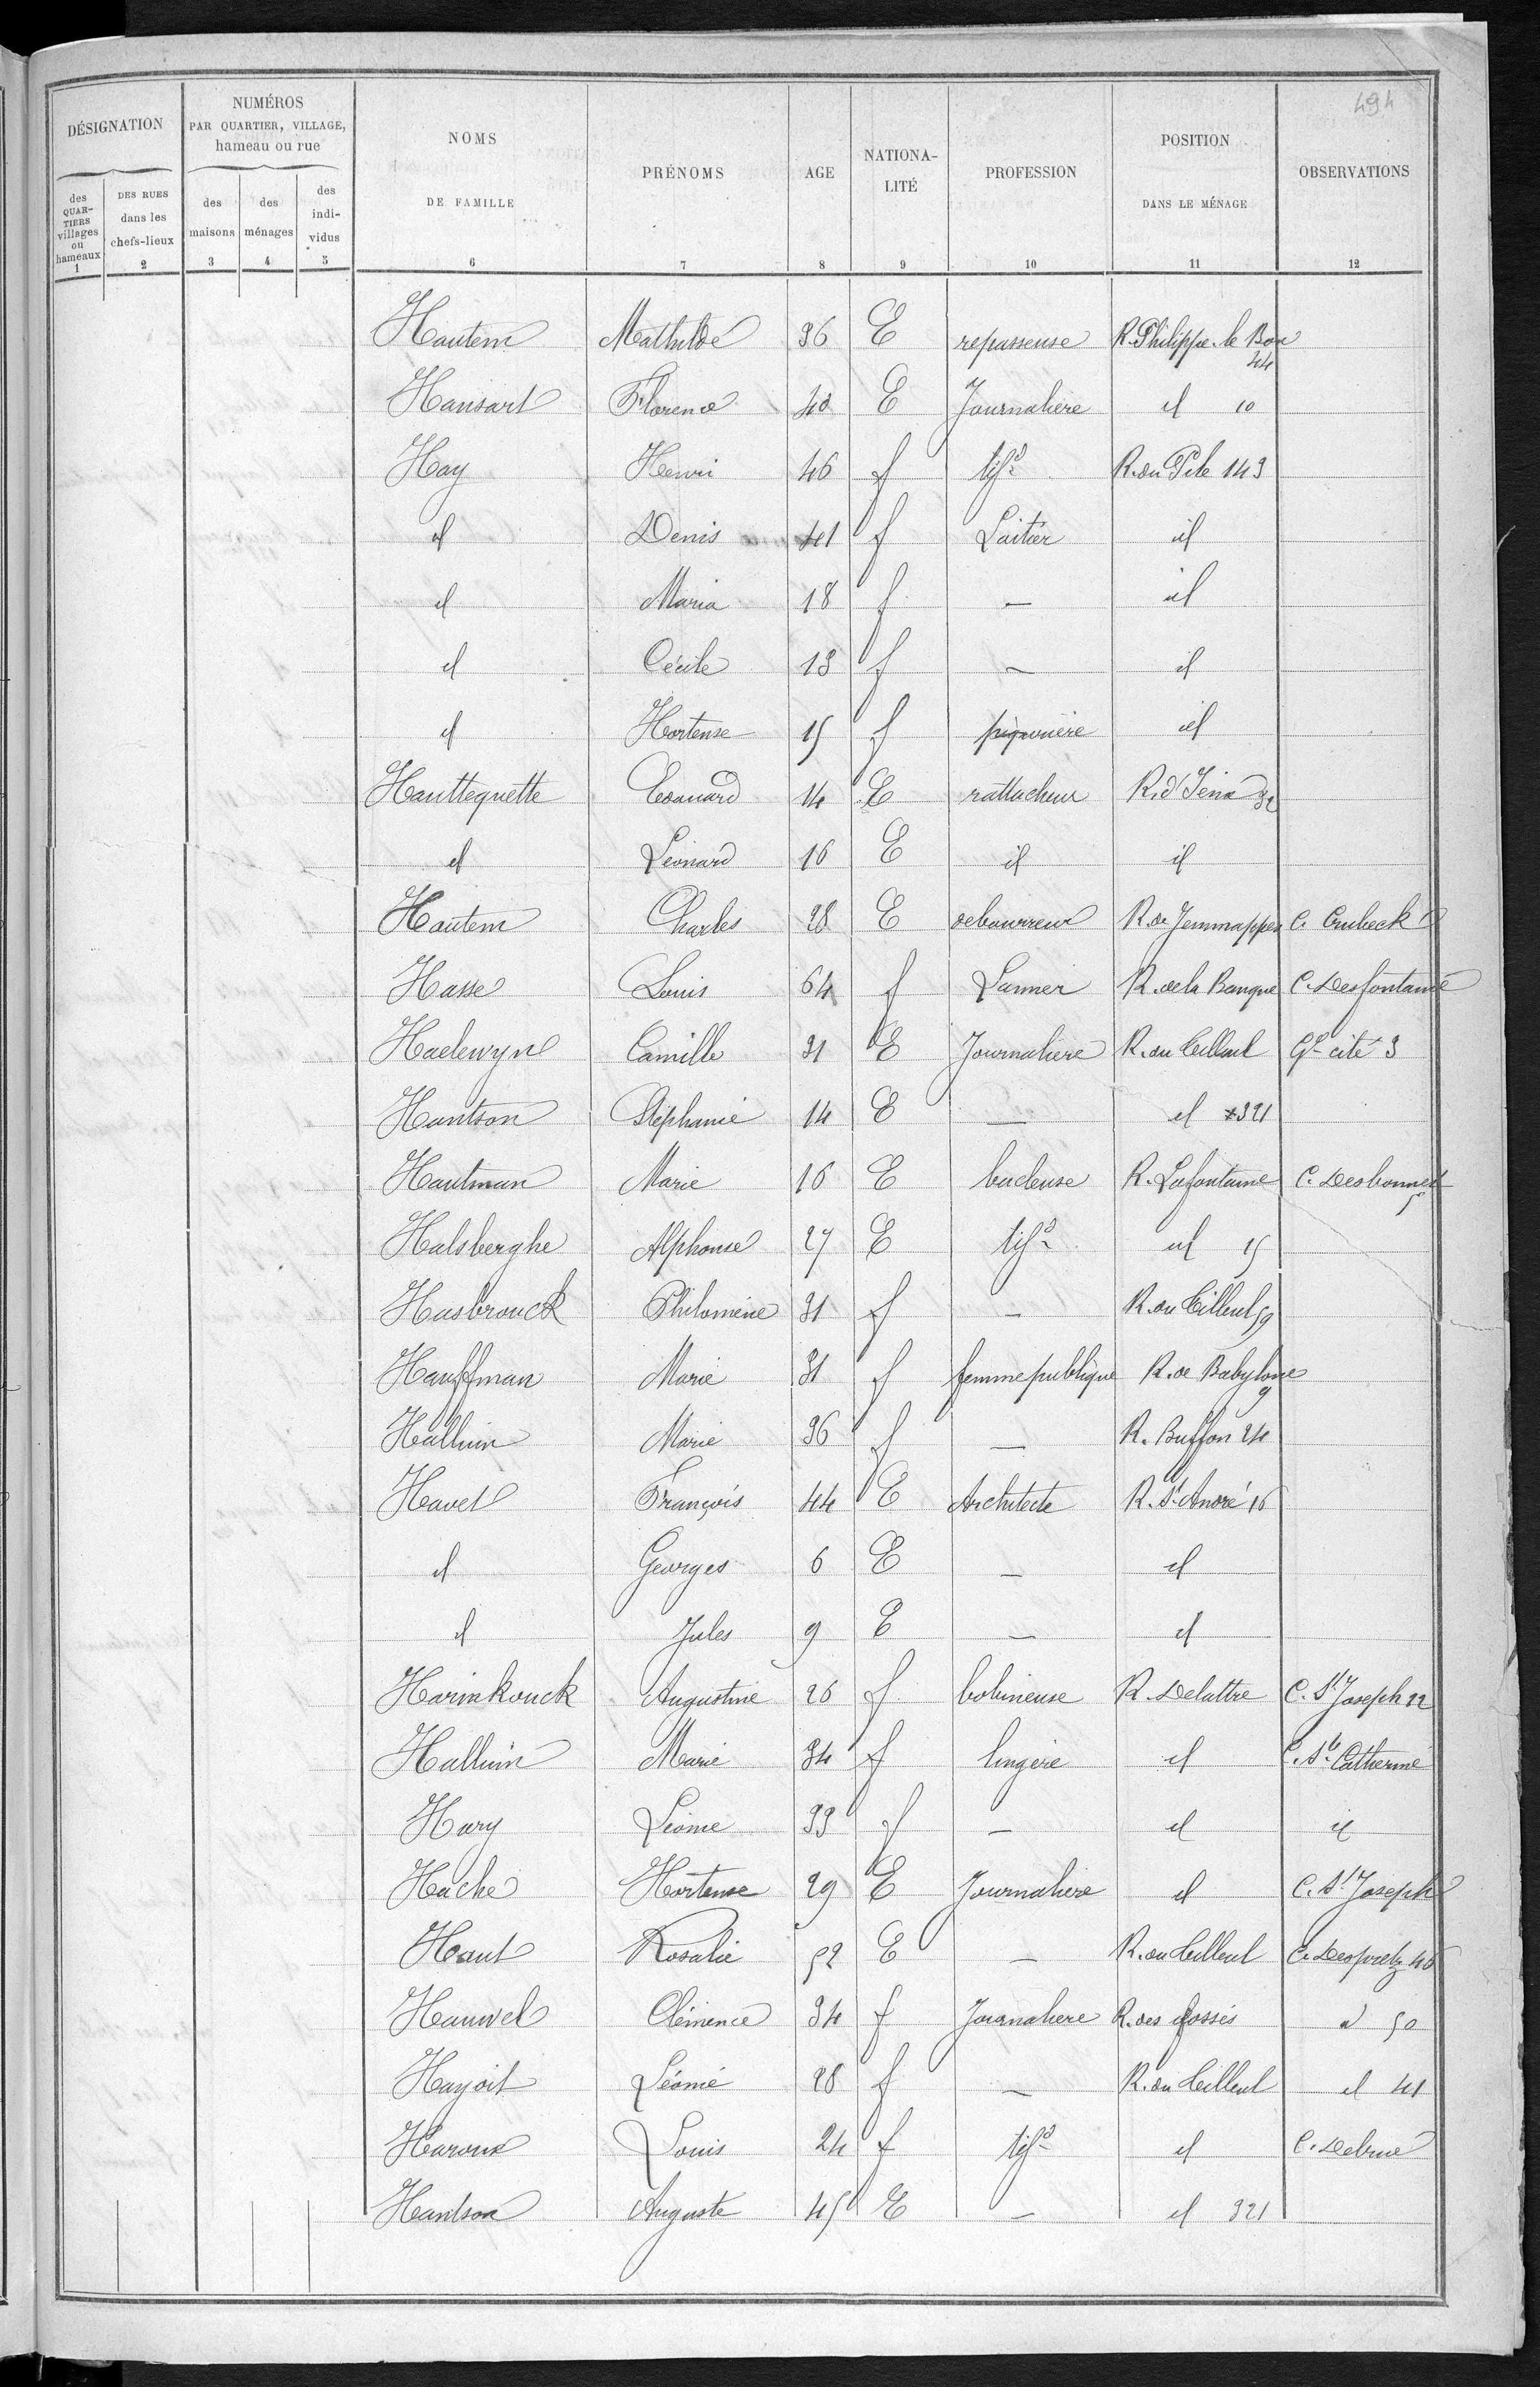 494
DÉSIGNATION
NUMÉROS
PAR QUARTIER, VILLAGE,
hameau ou rue
NOMS
DE FAMILLE
PRÉNOMS
AGE
NATIONA-
LITÉ
PROFESSION
POSITION
DANS LE MÉNAGE
OBSERVATIONS
des
QUAR-
TIERS
villages
ou
hameaux
DES RUES
dans les
chefs-lieux
des
maisons
des
ménages
des
indi-
vidus
1 2 3 4 5 6 7 8 9 10 11 12
Hautem Mathilde 36 E repasseuse R. Philippe le Bon 44
Hansart Florence 48 E Journalière id 10
Hay Henri 46 f tisd R. du Pile 143
id Denis 41 f Laitier id
id Maria 18 f — id
id Cécile 13 f — id
id Hortense 15 f piqurière id
Hauttequette Edouard 14 E rattacheur R. d'Iéna 32
id Léonard 16 E id id
Hautem Charles 28 E debourreur R. de Jemmappes C. Crubeck
Hasse Louis 64 f Lamier R. de la Banque C. Desfontaine
Haelewyn Camille 31 E Journalière R. du Tilleul Gde cité 3
Hantson Stéphanie 14 E — id 321
Hautman Marie 16 E bacleuse R. Lafontaine C. Desbonnet 5
Halsberghe Alphonse 27 E tisd id 15
Hasbrouck Philomène 31 f — R. du Tilleul 59
Hauffman Marie 31 f femme publique R. de Babylone 9
Halluin Marie 36 f — R. Buffon 24
Havet François 44 E Architecte R. St André 16
id Georges 6 E — id
id Jules 9 E — id
Harinkouck Augustine 26 f bobineuse R. Delattre C. St Joseph 22
Halluin Marie 34 f lingère id C. Ste Catherine
Hary Léonie 33 f — id id
Hache Hortense 29 E Journalière id C. St Joseph
Haut Rosalie 52 E — R. du Tilleul C. Despretz 46
Hauwel Clémence 34 f Journalière R. des fossés id 50
Hayoit Léonie 28 f — R. du Tilleul id 41
Haroux Louis 24 f tisd id C. Debrue
Hantson Auguste 45 E — id 321